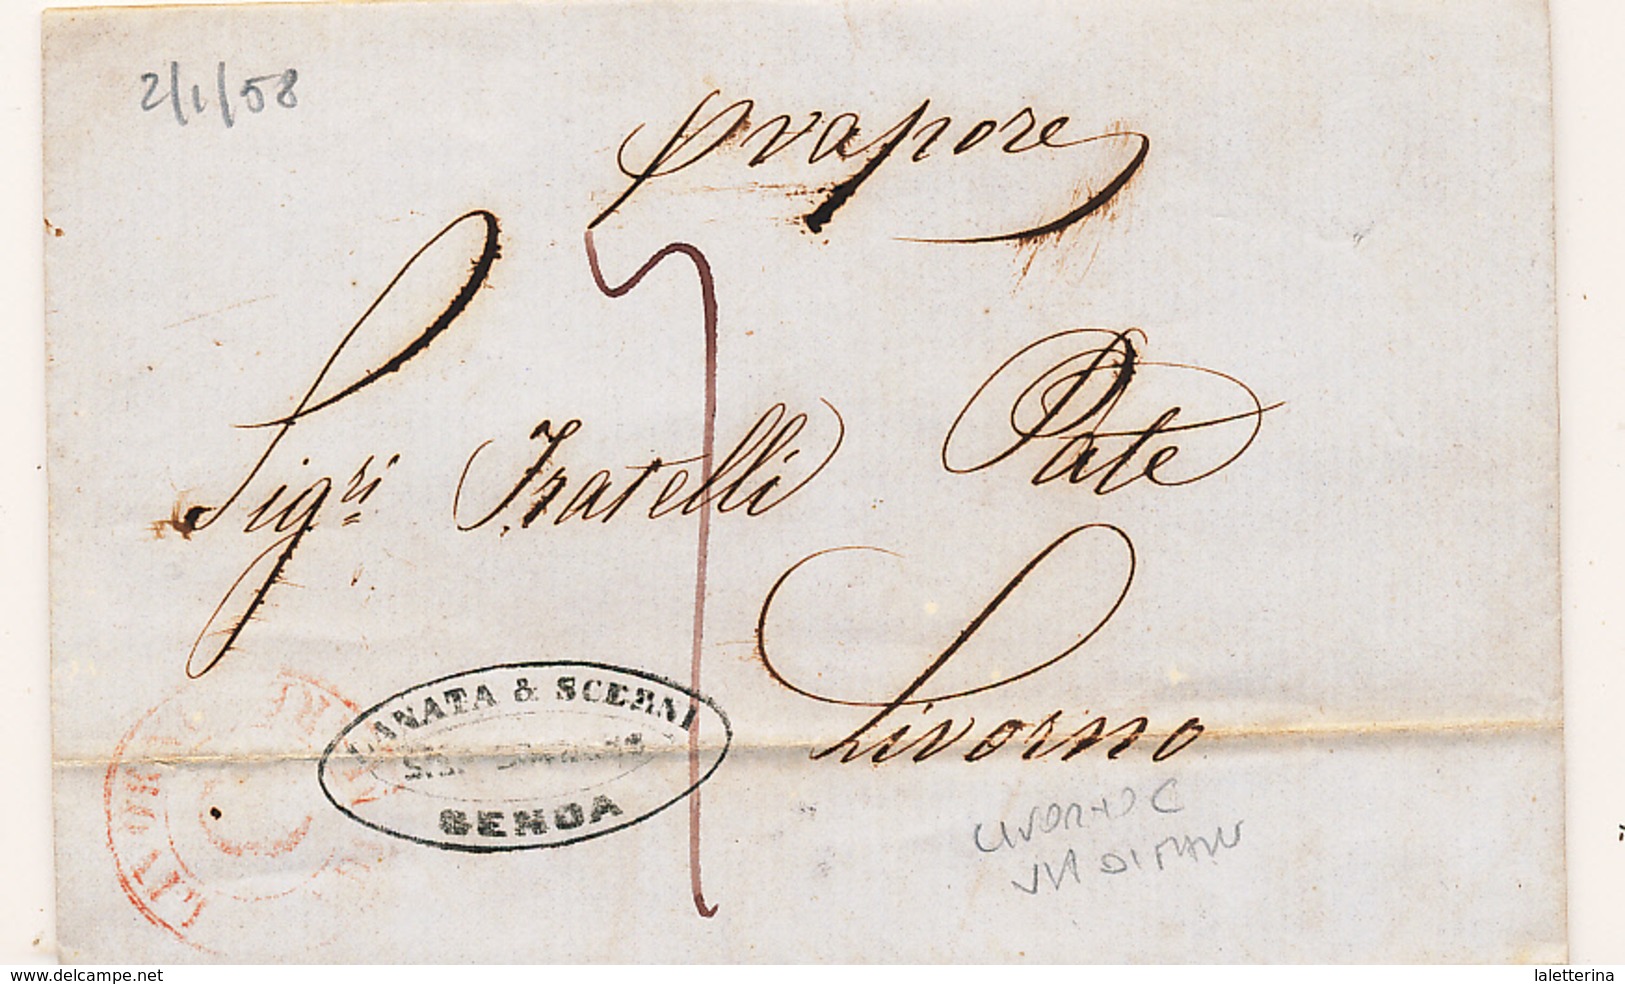 2/1/58
vapore
Sigri Fratelli Pate
Livorno
LANATA & SCERNI
GENOA
LIVORNO
VIA DI MARE
www.delcampe.net
laletterina